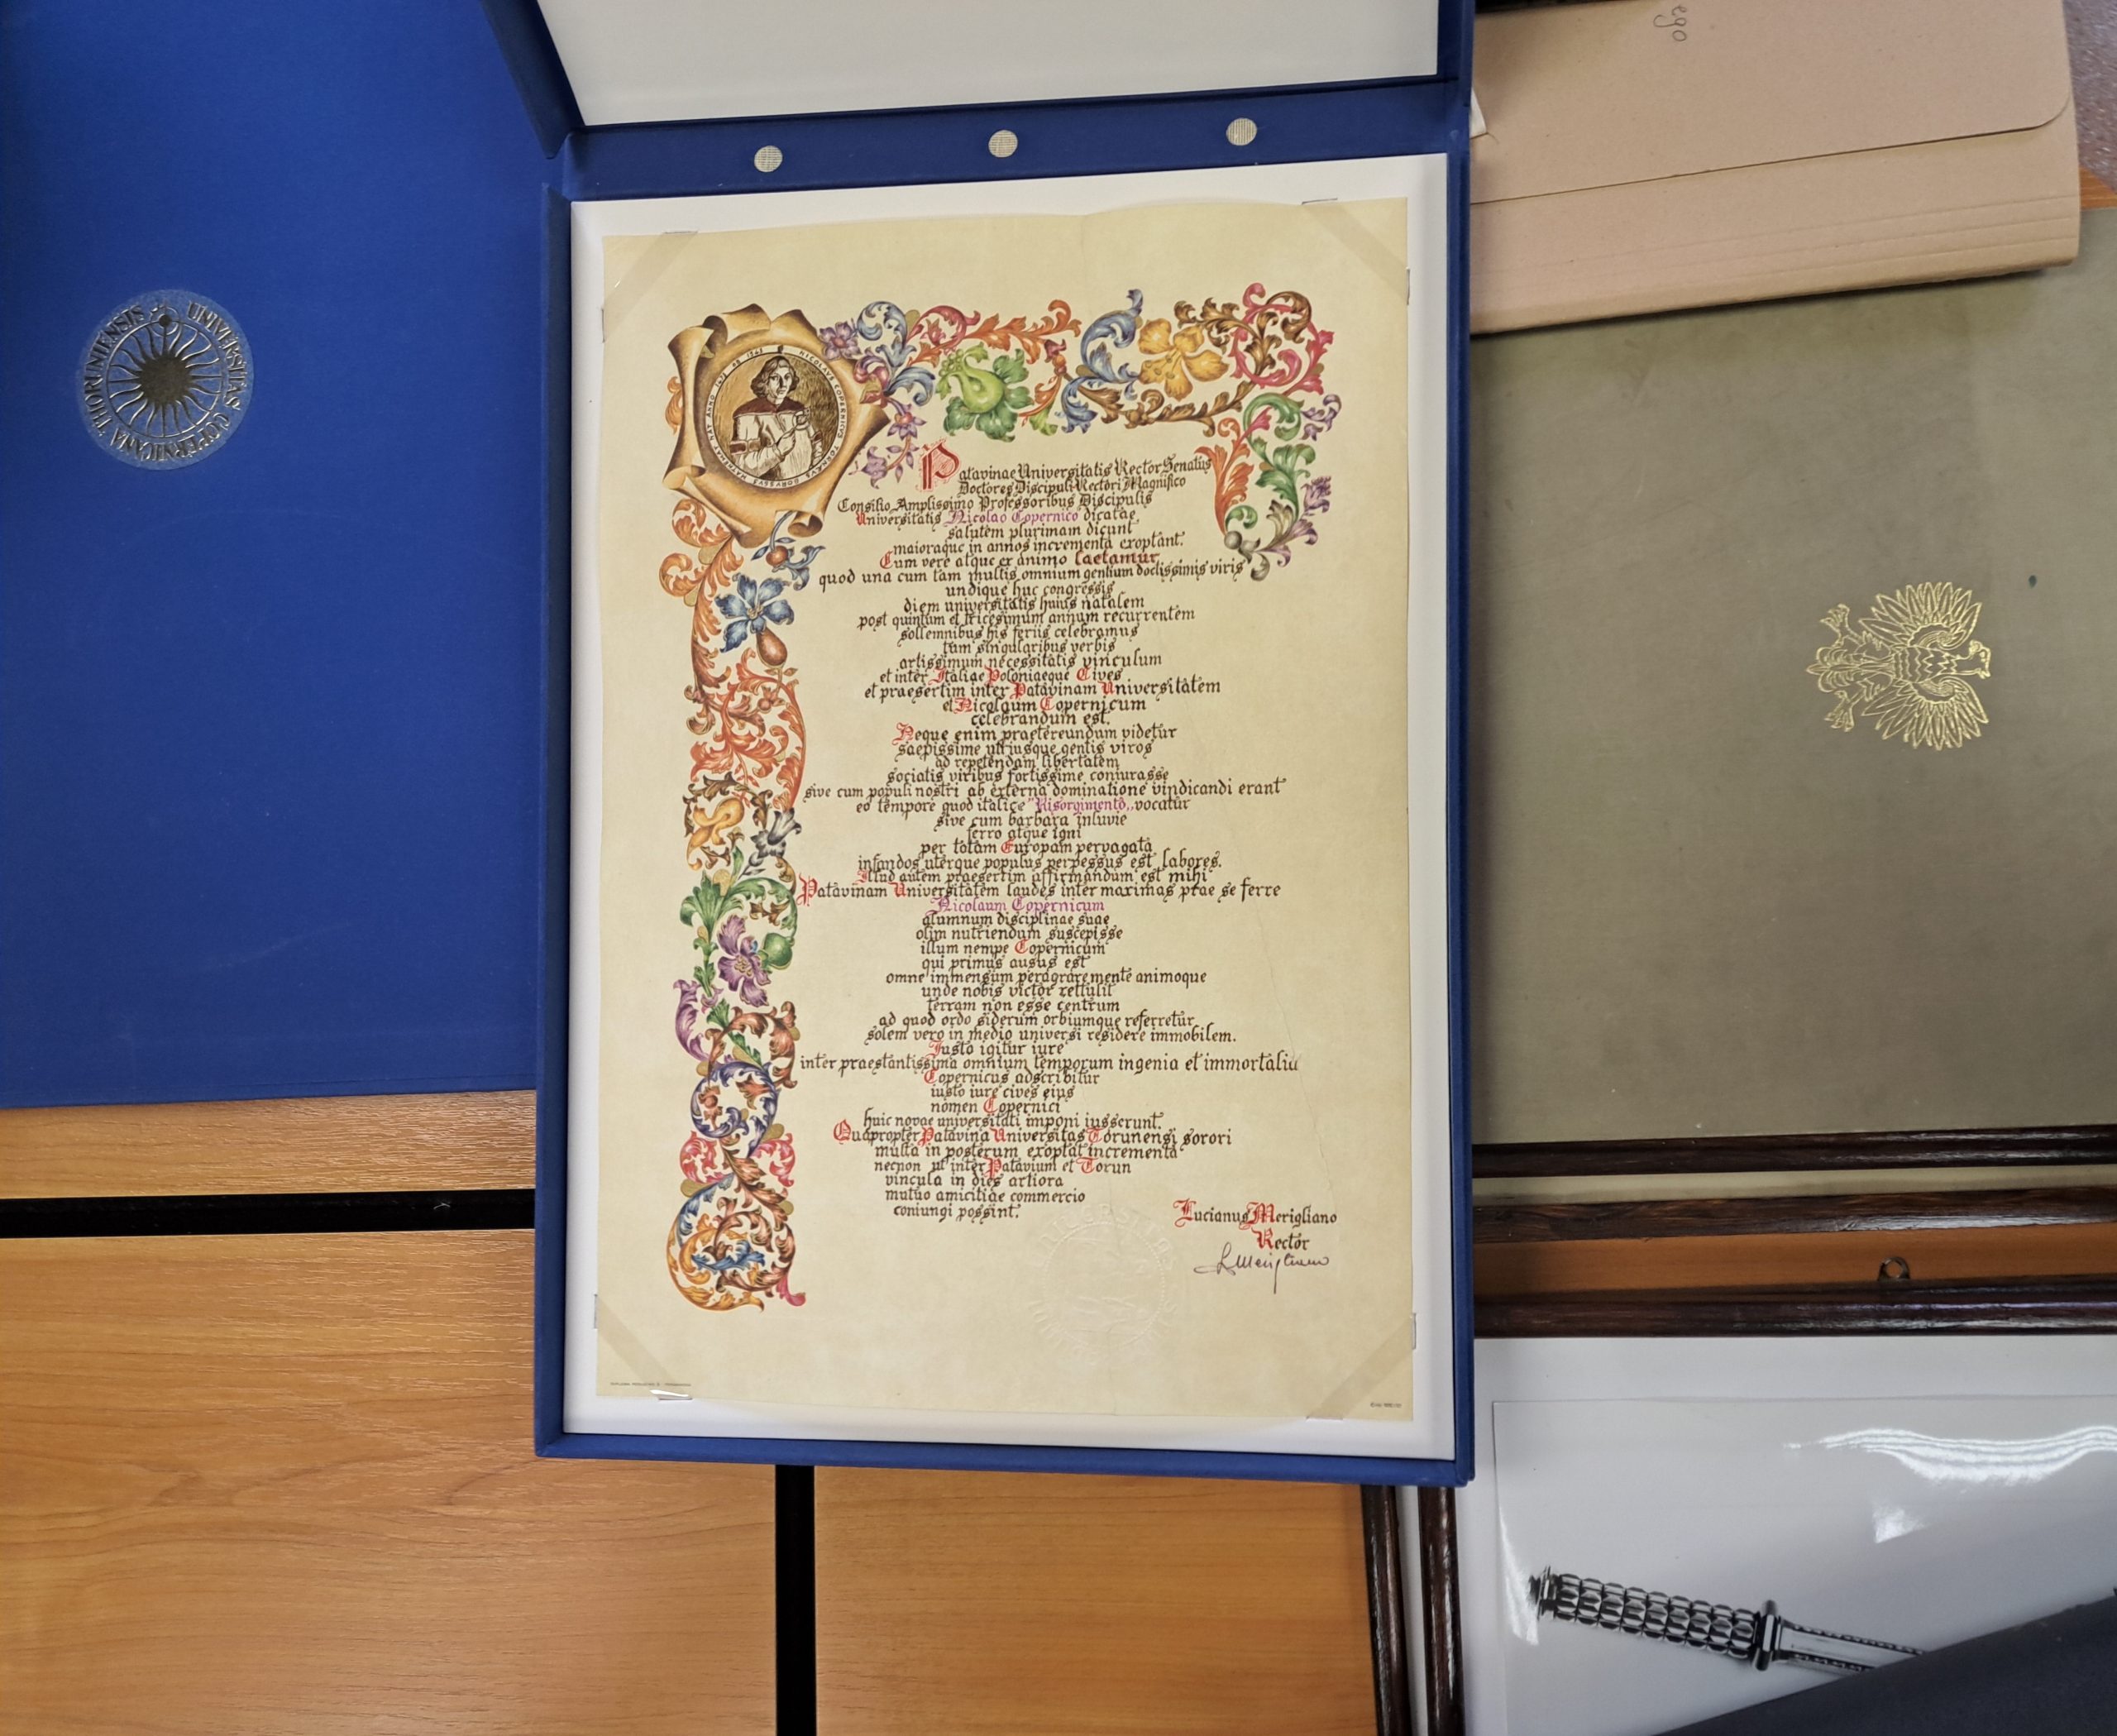 ego
UNIVERSITAS COPERNICANA THORUNENSIS
NICOLAVS COPERNICVS TORNAEVS BORVSSVS MATHEMAT
Patavinae Universitatis Rector Senatus
Doctores Discipuli Rectori Magnifico
Consilio Amplissimo Professoribus Discipulis
Universitatis Nicolao Copernico dicatae
salutem plurimam dicunt
maioraque in annos incrementa exoptant.
Cum vere atque ex animo laetamur
quod una cum tam multis omnium gentium doctissimis viris
undique huc congressis
diem universitatis huius natalem
post quintum et tricesimum annum recurrentem
sollemnibus his feriis celebramus
tum singularibus verbis
artissimum necessitatis vinculum
et inter Italiae Poloniaeque Cives
et praesertim inter Patavinam Universitatem
et Nicolaum Copernicum
celebrandum est.
Neque enim praetereundum videtur
saepissime utriusque gentis viros
ad repetendam libertatem
sociatis viribus fortissime coniurasse
sive cum populi nostri ab externa dominatione vindicandi erant
eo tempore quod italice "Risorgimento,, vocatur
sive cum barbara inluvie
ferro atque igni
per totam Europam pervagata
infandos uterque populus perpessus est labores.
Illud autem praesertim affirmandum est mihi
Patavinam Universitatem laudes inter maximas prae se ferre
Nicolaum Copernicum
alumnum disciplinae suae
olim nutriendum suscepisse
illum nempe Copernicum
qui primus ausus est
omne immensum peragrare mente animoque
unde nobis victor rettulit
terram non esse centrum
ad quod ordo siderum orbiumque referretur
solem vero in medio universi residere immobilem.
Iusto igitur iure
inter praestantissima omnium temporum ingenia et immortalia
Copernicus adscribitur
iusto iure cives eius
nomen Copernici
huic novae universitati imponi iusserunt.
Quapropter Patavina Universitas Torunensi sorori
multa in posterum exoptat incrementa
necnon ut inter Patavium et Torun
vincula in dies artiora
mutuo amicitiae commercio
coniungi possint.
Lucianus Merigliano
Rector
LMerigliano